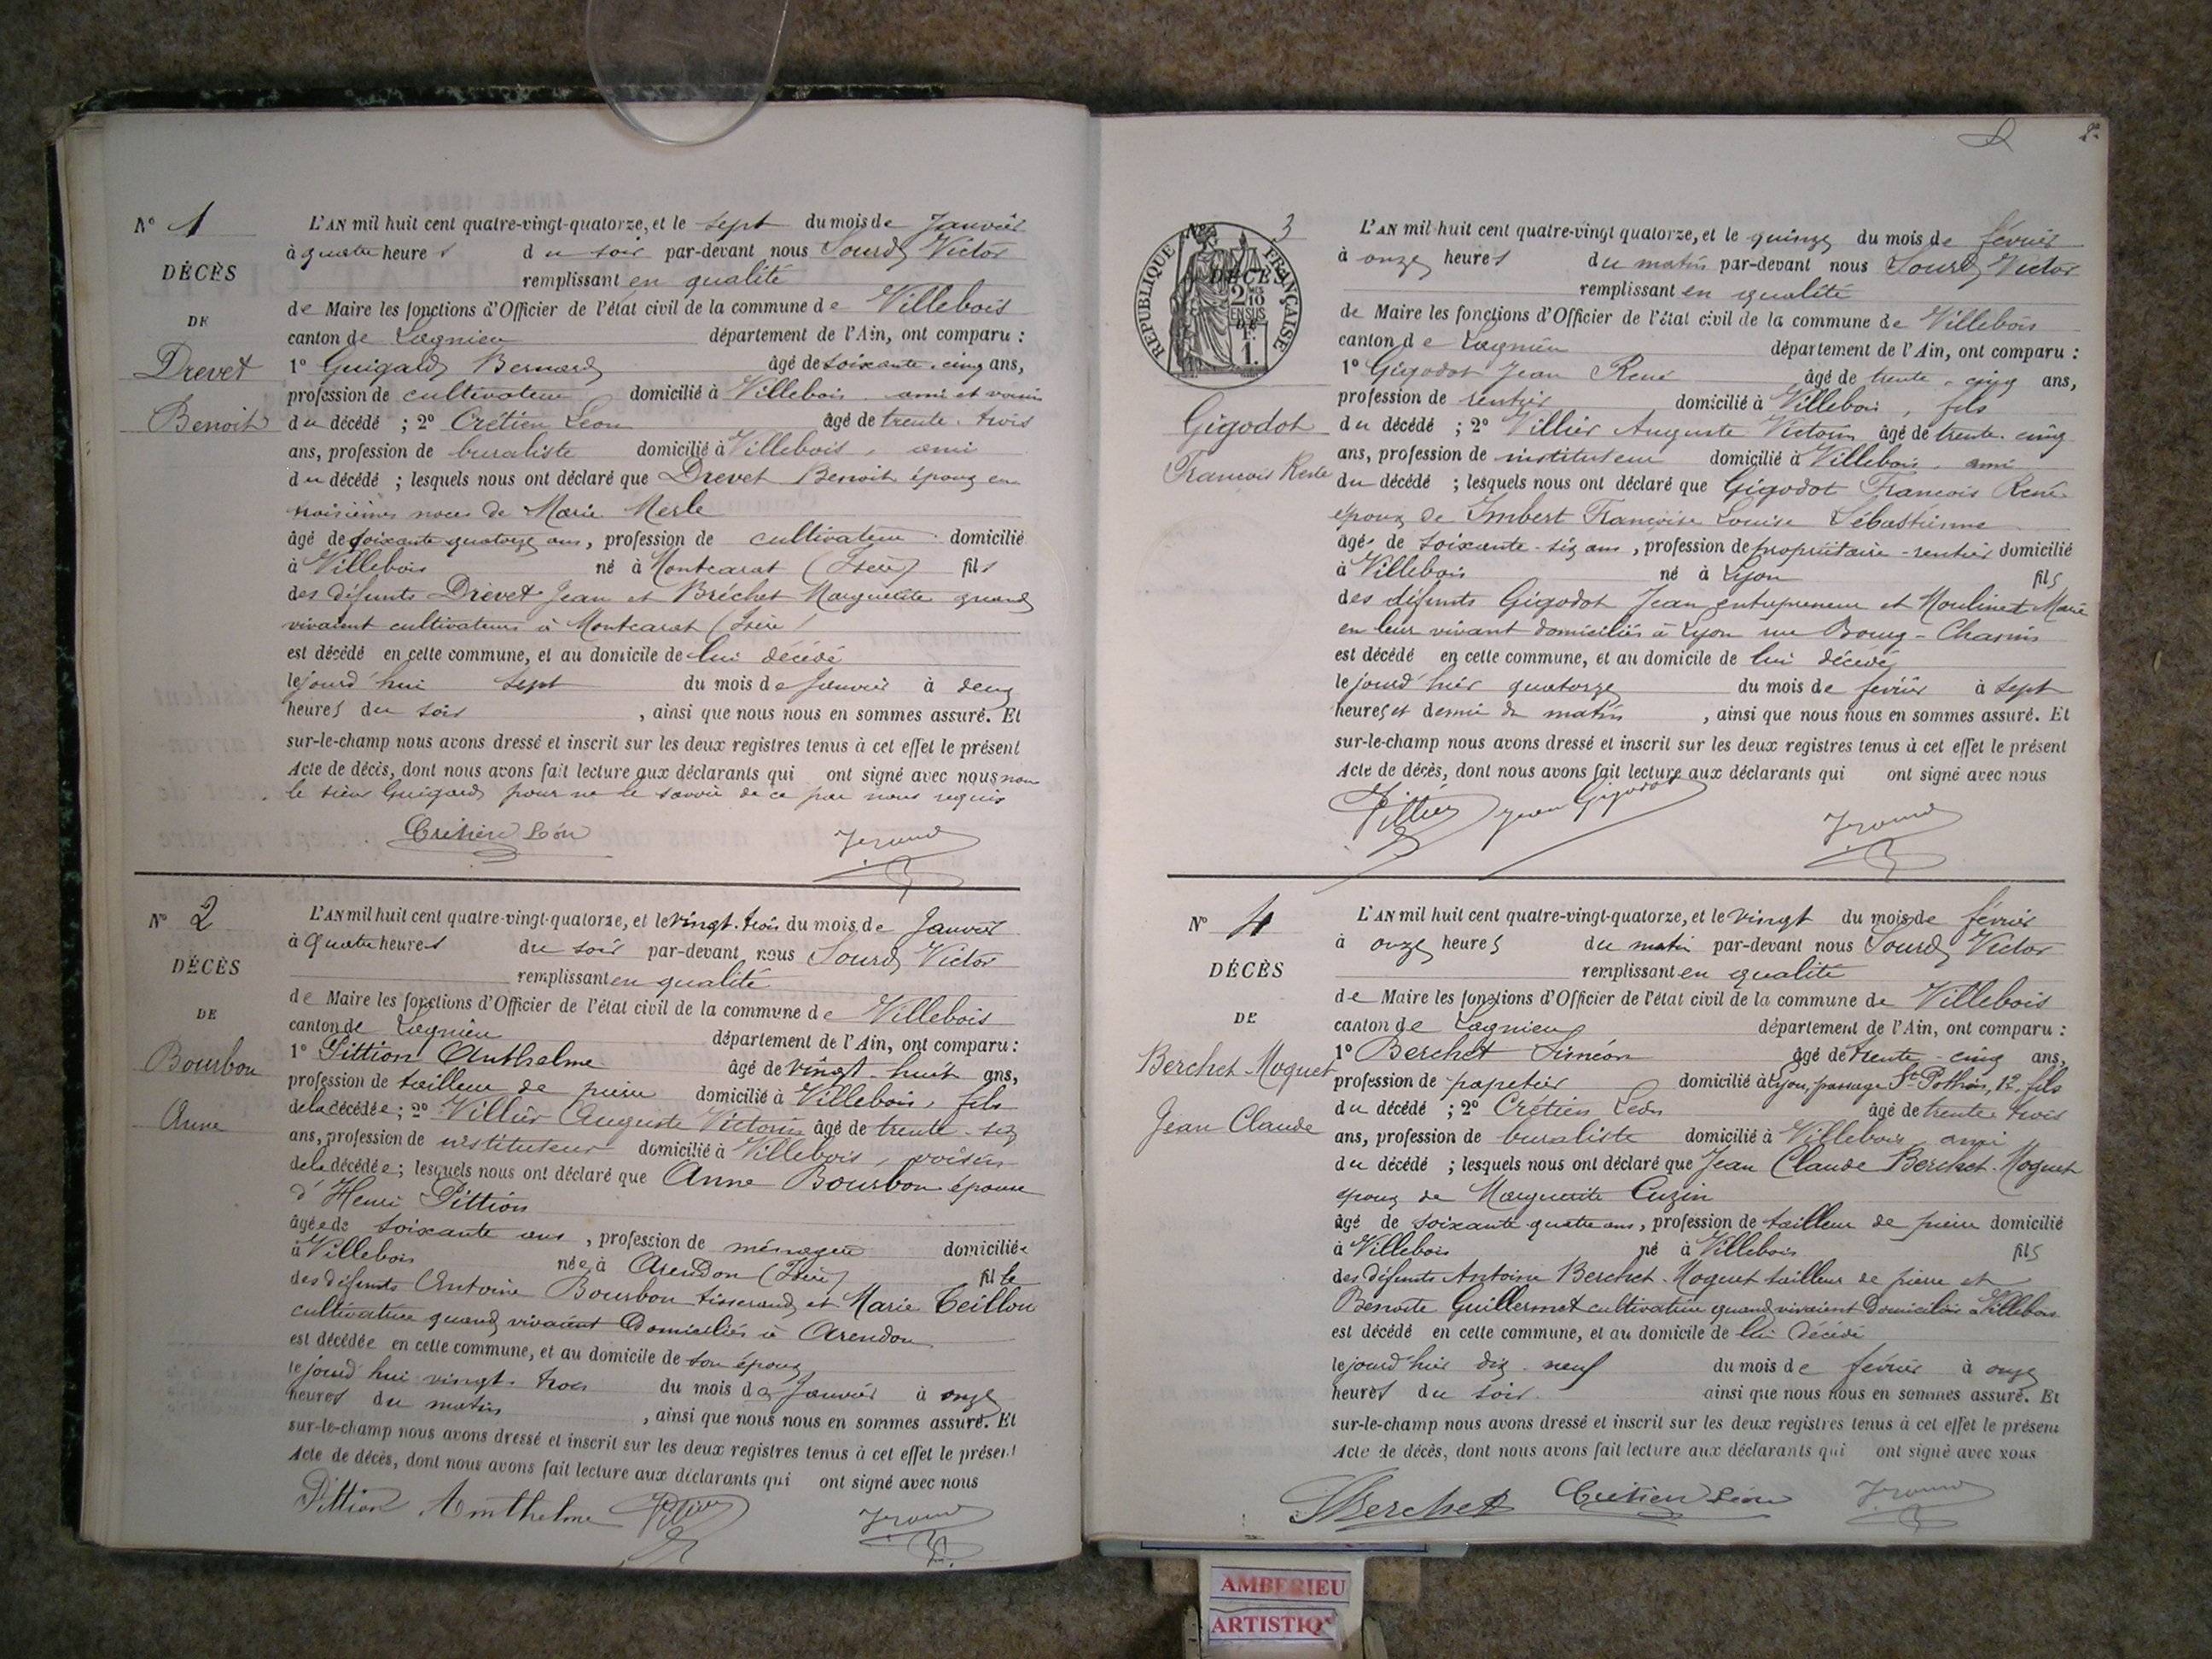 N° 1
DÉCÈS
DE
Drevet
Benoit
L'AN mil huit cent quatre-vingt-quatorze, et le sept du mois de Janvier
à quatre heures du soir par-devant nous Sourd Victor
remplissant en qualité
de Maire les fonctions d'Officier de l'état civil de la commune de Villebois
canton de Lagnieu département de l'Ain, ont comparu :
1° Guigard Bernard âgé de soixante-cinq ans,
profession de cultivateur domicilié à Villebois ami et voisin
du décédé ; 2° Crétien Léon âgé de trente-trois
ans, profession de buraliste domicilié à Villebois, ami
du décédé ; lesquels nous ont déclaré que Drevet Benoit époux en
troisièmes noces de Marie Merle
âgé de soixante quatorze ans, profession de cultivateur domicilié
à Villebois né à Montcarat (Isère) fils
des défunts Drevet Jean et Bréchet Marguerite quand
vivaient cultivateurs à Montcarat (Isère)
est décédé en cette commune, et au domicile de lui décédé
lejourd'hui sept du mois de Janvier à deux
heures du soir, ainsi que nous nous en sommes assuré. Et
sur-le-champ nous avons dressé et inscrit sur les deux registres tenus à cet effet le présent
Acte de décès, dont nous avons fait lecture aux déclarants qui ont signé avec nous non
le sieur Guigard pour ne le savoir de ce par nous requis
Crétien Léon
N° 2
DÉCÈS
DE
Bourbon
Anne
L'AN mil huit cent quatre-vingt-quatorze, et le vingt-trois du mois de Janvier
à quatre heures du soir par-devant nous Sourd Victor
remplissant en qualité
de Maire les fonctions d'Officier de l'état civil de la commune de Villebois
canton de Lagnieu département de l'Ain, ont comparu :
1° Pittion Anthelme âgé de vingt-huit ans,
profession de tailleur de pierre domicilié à Villebois, fils
de la décédée ; 2° Villier Auguste Victorin âgé de trente-six
ans, profession de instituteur domicilié à Villebois, voisin
de la décédée ; lesquels nous ont déclaré que Anne Bourbon épouse
d'Henri Pittion
âgée de soixante ans, profession de ménagère domiciliée
à Villebois née à Arendon (Isère) fille
des défunts Antoine Bourbon tisserand et Marie Teillon
cultivatrice quand vivaient domiciliés à Arendon
est décédée en cette commune, et au domicile de son époux
lejourd'hui vingt-trois du mois de Janvier à onze
heures du matin, ainsi que nous nous en sommes assuré. Et
sur-le-champ nous avons dressé et inscrit sur les deux registres tenus à cet effet le présent
Acte de décès, dont nous avons fait lecture aux déclarants qui ont signé avec nous
Pittion Anthelme
2
N° 3
RÉPUBLIQUE FRANÇAISE
DÉCÈS
2/10 EN SUS
DE
1 F.
Gigodot
Francois René
L'AN mil huit cent quatre-vingt quatorze, et le quinze du mois de février
à onze heures du matin par-devant nous Sourd Victor
remplissant en qualité
de Maire les fonctions d'Officier de l'état civil de la commune de Villebois
canton de Lagnieu département de l'Ain, ont comparu :
1° Gigodot Jean René âgé de trente-cinq ans,
profession de rentier domicilié à Villebois, fils
du décédé ; 2° Villier Auguste Victorin âgé de trente-cinq
ans, profession de instituteur domicilié à Villebois, ami
du décédé ; lesquels nous ont déclaré que Gigodot Francois René
époux de Imbert Francoise Louise Sébastienne
âgé de soixante-six ans, profession de propriétaire-rentier domicilié
à Villebois né à Lyon fils
des défunts Gigodot Jean entrepreneur et Moulinet Marie
en leur vivant domiciliés à Lyon rue Bourg-Chanin
est décédé en cette commune, et au domicile de lui décédé
lejourd'hier quatorze du mois de février à sept
heures et demie du matin, ainsi que nous nous en sommes assuré. Et
sur-le-champ nous avons dressé et inscrit sur les deux registres tenus à cet effet le présent
Acte de décès, dont nous avons fait lecture aux déclarants qui ont signé avec nous
Villier Jean Gigodot
N° 4
DÉCÈS
DE
Berchet-Moguet
Jean Claude
L'AN mil huit cent quatre-vingt-quatorze, et le vingt du mois de février
à onze heures du matin par-devant nous Sourd Victor
remplissant en qualité
de Maire les fonctions d'Officier de l'état civil de la commune de Villebois
canton de Lagnieu département de l'Ain, ont comparu :
1° Berchet Siméon âgé de trente-cinq ans,
profession de papetier domicilié à Lyon, passage St Pothin, 12, fils
du décédé ; 2° Crétien Léon âgé de trente-trois
ans, profession de buraliste domicilié à Villebois ami
du décédé ; lesquels nous ont déclaré que Jean Claude Berchet-Moguet
époux de Marguerite Cuzin
âgé de soixante-quatre ans, profession de tailleur de pierre domicilié
à Villebois né à Villebois fils
des défunts Antoine Berchet-Moguet tailleur de pierre et
Benoite Guillermet cultivatrice quand vivaient domiciliés à Villebois
est décédé en cette commune, et au domicile de lui décédé
lejourd'hier dix-neuf du mois de février à onze
heures du soir ainsi que nous nous en sommes assuré. Et
sur-le-champ nous avons dressé et inscrit sur les deux registres tenus à cet effet le présent
Acte de décès, dont nous avons fait lecture aux déclarants qui ont signé avec nous
SBerchet Crétien Léon
AMBERIEU
ARTISTIQ